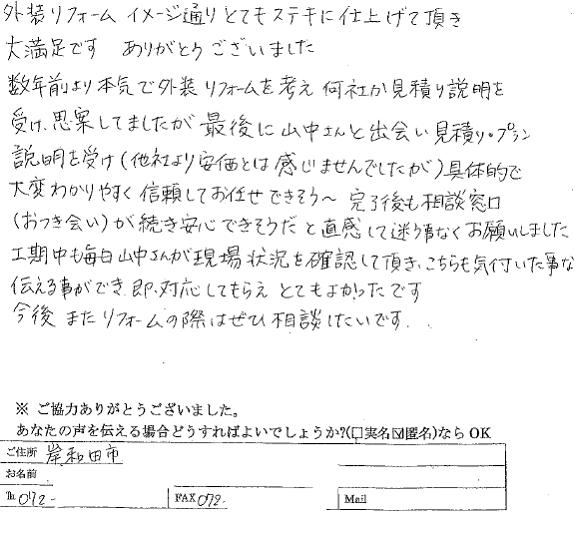 外装リフォーム イメージ通りとてもステキに仕上げて頂き
大満足です ありがとうございました
数年前より本気で外装リフォームを考え 何社か見積り説明を
受け、思案してましたが 最後に山中さんと出会い見積り・プラン
説明を受け(他社より安価とは感じませんでしたが)具体的で
大変わかりやすく信頼してお任せできそう~ 完了後も相談窓口
(おつき会い)が続き安心できそうだと直感して迷う事なくお願いしました
工期中も毎日山中さんが現場状況を確認して頂き、こちらも気付いた事な
伝える事ができ 即、対応してもらえ とてもよかったです
今後 またリフォームの際はぜひ相談したいです..
※ ご協力ありがとうございました。
あなたの声を伝える場合どうすればよいでしょうか?(□実名☑匿名)なら OK
ご住所 岸和田市
お名前
℡ 072-
FAX 072-
Mail